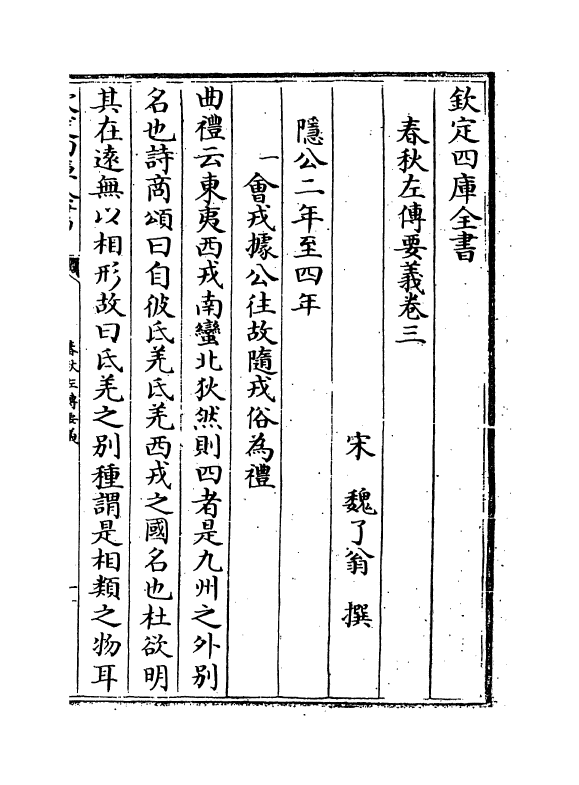 欽定四庫全書
春秋左傳要義卷三
宋　魏了翁　撰
隱公二年至四年
一會戎據公往故隨戎俗為禮
曲禮云東夷西戎南蠻北狄然則四者是九州之外別
名也詩商頌曰自彼氐羌氐羌西戎之國名也杜欲明
其在遠無以相形故曰氐羌之別種謂是相類之物耳
春秋左傳要義